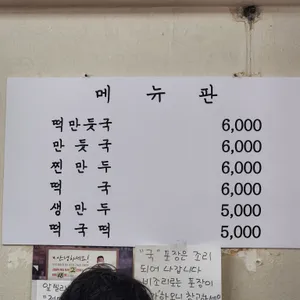 메 뉴 판
떡만둣국 6,000
만 둣 국 6,000
찐 만 두 6,000
떡 국 6,000
생 만 두 5,000
떡 국 떡 5,000
"안녕하세요!
"국" 포장은 조리
되어 나갑니다
비조리로는 포장이